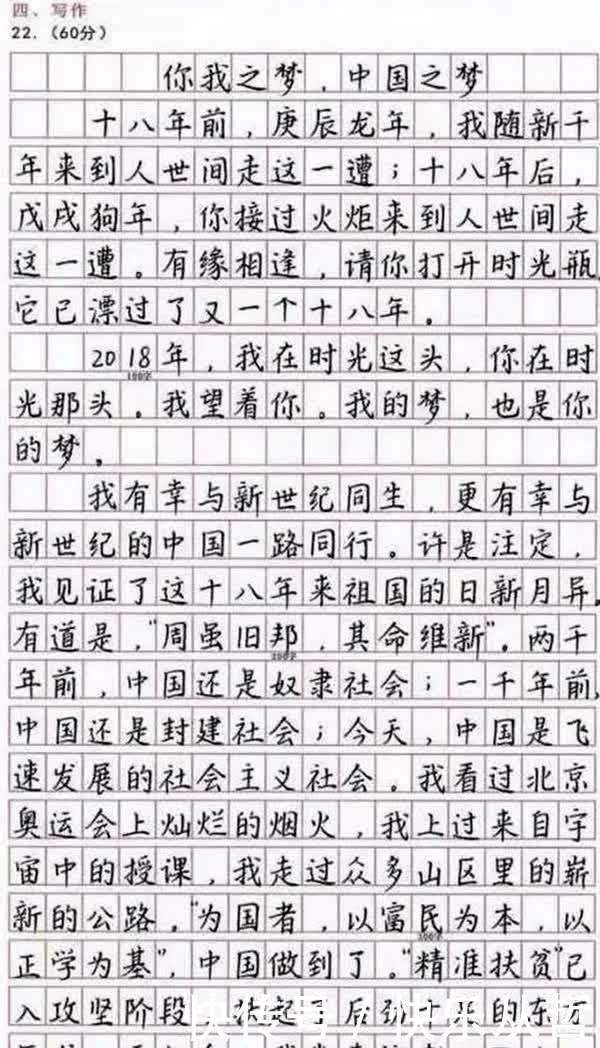 四、写作
22.（60分）
你我之梦，中国之梦
十八年前，庚辰龙年，我随新千
年来到人世间走这一遭；十八年后，
戊戌狗年，你接过火炬来到人世间走
这一遭。有缘相逢，请你打开时光瓶，
它已漂过了又一个十八年。
2018年，我在时光这头，你在时
100字
光那头。我望着你。我的梦，也是你
的梦。
我有幸与新世纪同生，更有幸与
新世纪的中国一路同行。许是注定，
我见证了这十八年来祖国的日新月异。
有道是，“周虽旧邦，其命维新”。两千
200字
年前，中国还是奴隶社会；一千年前，
中国还是封建社会；今天，中国是飞
速发展的社会主义社会。我看过北京
奥运会上灿烂的烟火，我上过来自宇
宙中的授课，我走过众多山区里的崭
新的公路。“为国者，以富民为本，以
300字
正学为基”，中国做到了。“精准扶贫”已
入攻坚阶段
快传号/快乐从哲